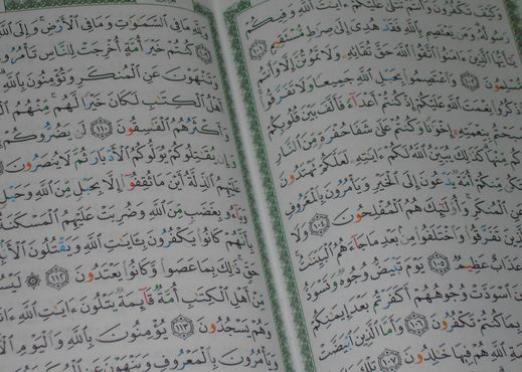 وَكَيْفَ تَكْفُرُونَ وَأَنتُمْ تُتْلَىٰ عَلَيْكُمْ ءَايَٰتُ ٱللَّهِ وَفِيكُمْ
رَسُولُهُۥ وَمَن يَعْتَصِم بِٱللَّهِ فَقَدْ هُدِىَ إِلَىٰ صِرَٰطٍ مُّسْتَقِيمٍ ١٠١
يَٰٓأَيُّهَا ٱلَّذِينَ ءَامَنُوا۟ ٱتَّقُوا۟ ٱللَّهَ حَقَّ تُقَاتِهِۦ وَلَا تَمُوتُنَّ إِلَّا وَأَنتُم
مُّسْلِمُونَ ١٠٢ وَٱعْتَصِمُوا۟ بِحَبْلِ ٱللَّهِ جَمِيعًا وَلَا تَفَرَّقُوا۟
وَٱذْكُرُوا۟ نِعْمَتَ ٱللَّهِ عَلَيْكُمْ إِذْ كُنتُمْ أَعْدَآءً فَأَلَّفَ بَيْنَ قُلُوبِكُمْ
فَأَصْبَحْتُم بِنِعْمَتِهِۦٓ إِخْوَٰنًا وَكُنتُمْ عَلَىٰ شَفَا حُفْرَةٍ مِّنَ ٱلنَّارِ
فَأَنقَذَكُم مِّنْهَا كَذَٰلِكَ يُبَيِّنُ ٱللَّهُ لَكُمْ ءَايَٰتِهِۦ لَعَلَّكُمْ تَهْتَدُونَ
وَلْتَكُن مِّنكُمْ أُمَّةٌ يَدْعُونَ إِلَى ٱلْخَيْرِ وَيَأْمُرُونَ بِٱلْمَعْرُوفِ
عَنِ ٱلْمُنكَرِ وَأُو۟لَٰٓئِكَ هُمُ ٱلْمُفْلِحُونَ ١٠٤ وَلَا
كَٱلَّذِينَ تَفَرَّقُوا۟ وَٱخْتَلَفُوا۟ مِنۢ بَعْدِ مَا جَآءَهُمُ ٱلْبَيِّنَٰتُ
عَذَابٌ عَظِيمٌ ١٠٥ يَوْمَ تَبْيَضُّ وُجُوهٌ وَتَسْوَدُّ
ٱلَّذِينَ ٱسْوَدَّتْ وُجُوهُهُمْ أَكَفَرْتُم بَعْدَ إِيمَٰنِكُمْ
بِمَا كُنتُمْ تَكْفُرُونَ ١٠٦ وَأَمَّا ٱلَّذِينَ ٱبْيَضَّتْ
رَحْمَةِ ٱللَّهِ هُمْ فِيهَا خَٰلِدُونَ ١٠٧ تِلْكَ
وَلِلَّهِ مَا فِى ٱلسَّمَٰوَٰتِ وَمَا فِى ٱلْأَرْضِ وَإِلَى ٱللَّهِ
كُنتُمْ خَيْرَ أُمَّةٍ أُخْرِجَتْ لِلنَّاسِ تَأْمُرُونَ
وَتَنْهَوْنَ عَنِ ٱلْمُنكَرِ وَتُؤْمِنُونَ بِٱللَّهِ
أَهْلُ ٱلْكِتَٰبِ لَكَانَ خَيْرًا لَّهُم مِّنْهُمُ
وَأَكْثَرُهُمُ ٱلْفَٰسِقُونَ ١١٠ لَن يَضُرُّوكُمْ
وَإِن يُقَٰتِلُوكُمْ يُوَلُّوكُمُ ٱلْأَدْبَارَ ثُمَّ لَا يُنصَرُونَ
عَلَيْهِمُ ٱلذِّلَّةُ أَيْنَ مَا ثُقِفُوٓا۟ إِلَّا بِحَبْلٍ مِّنَ ٱللَّهِ وَحَبْلٍ
وَبَآءُو بِغَضَبٍ مِّنَ ٱللَّهِ وَضُرِبَتْ عَلَيْهِمُ ٱلْمَسْكَنَةُ
بِأَنَّهُمْ كَانُوا۟ يَكْفُرُونَ بِـَٔايَٰتِ ٱللَّهِ وَيَقْتُلُونَ
حَقٍّ ذَٰلِكَ بِمَا عَصَوا۟ وَّكَانُوا۟ يَعْتَدُونَ ١١٢ لَيْسُوا۟
مِّنْ أَهْلِ ٱلْكِتَٰبِ أُمَّةٌ قَآئِمَةٌ يَتْلُونَ ءَايَٰتِ ٱللَّهِ
وَهُمْ يَسْجُدُونَ ١١٣ يُؤْمِنُونَ بِٱللَّهِ وَٱلْيَوْمِ
وَيَأْمُرُونَ بِٱلْمَعْرُوفِ وَيَنْهَوْنَ عَنِ